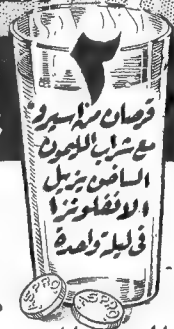 ٢
قرصان من اسبرو
مع شراب الليمون
الساخن يزيل
الانفلونزا
فى ليلة واحدة
ASPRO
ASPRO